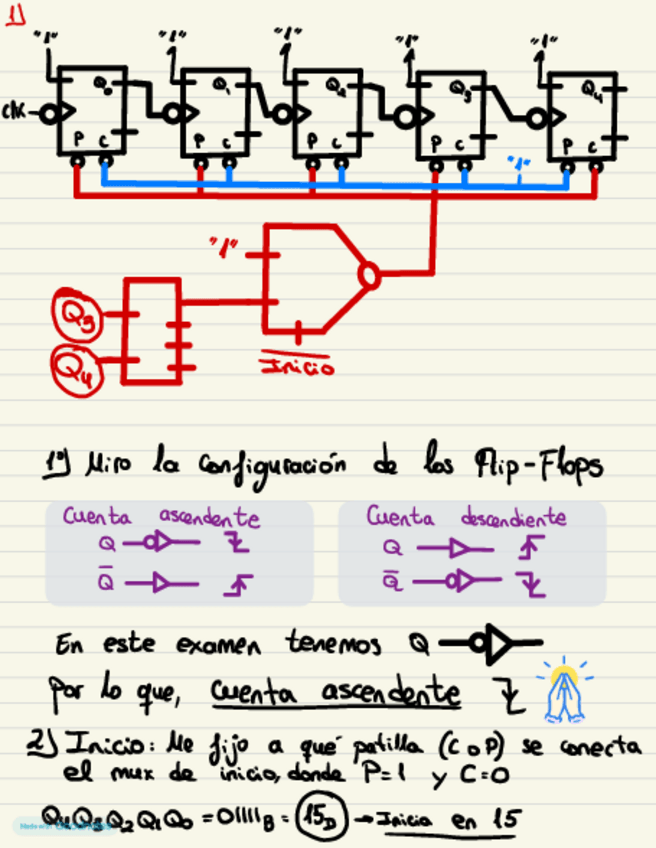 1)
"1" "1" "1" "1" "1"
CLK Q₀ Q₁ Q₂ Q₃ Q₄
P C P C P C P C P C
"1"
"1"
Q3
Q4
Inicio
1º) Miro la configuración de los Flip-Flops
Cuenta ascendente
Q
Q̅
Cuenta descendiente
Q
Q̅
En este examen tenemos Q
por lo que, cuenta ascendente
2) Inicio: Me fijo a qué patilla (C o P) se conecta
el mux de inicio, donde P=1 y C=0
Q4Q3Q2Q1Q0 = 01111B = 15D → Inicia en 15